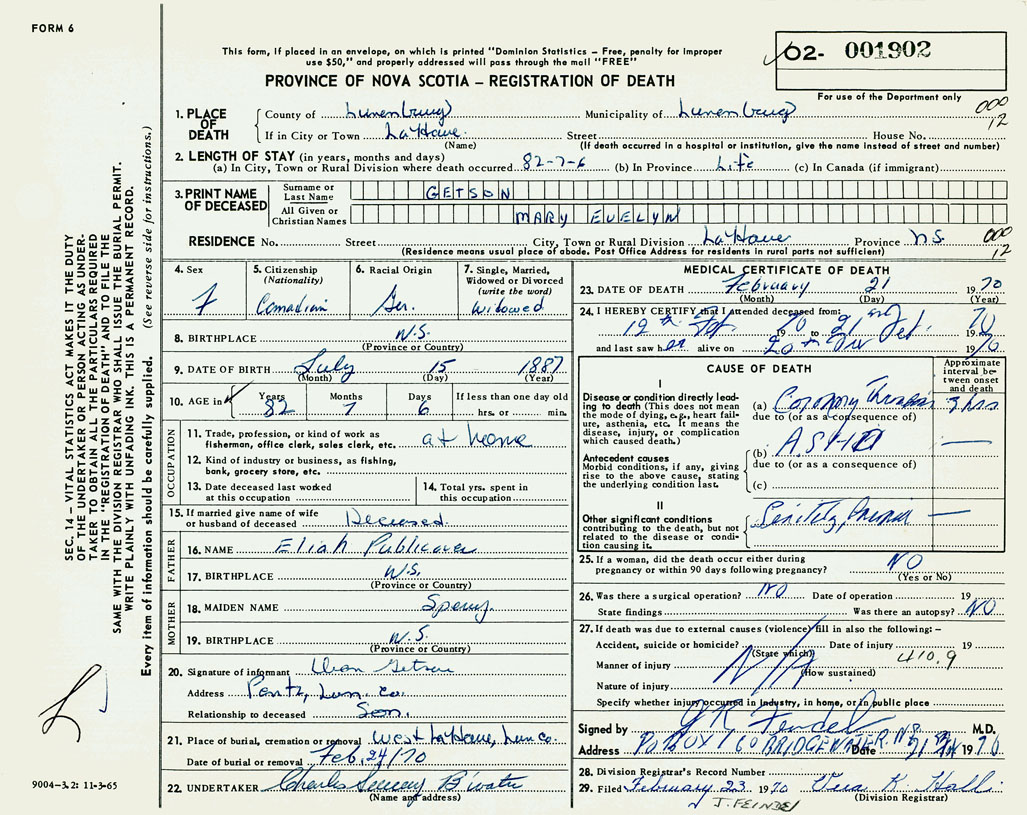 FORM 6
This form, if placed in an envelope, on which is printed "Dominion Statistics – Free, penalty for improper
use $50," and properly addressed will pass through the mail "FREE"
PROVINCE OF NOVA SCOTIA – REGISTRATION OF DEATH
02- 001902
For use of the Department only
1. PLACE OF DEATH
County of Lunenburg Municipality of Lunenburg 000
If in City or Town LaHave Street House No. 12
(Name) (If death occurred in a hospital or institution, give the name instead of street and number)
2. LENGTH OF STAY (in years, months and days)
(a) In City, Town or Rural Division where death occurred 82-7-6 (b) In Province Life (c) In Canada (if immigrant)
3. PRINT NAME OF DECEASED
Surname or Last Name GETSON
All Given or Christian Names MARY EVELYN
RESIDENCE No. Street City, Town or Rural Division LaHave Province N.S. 000
(Residence means usual place of abode. Post Office Address for residents in rural parts not sufficient) 12
4. Sex F
5. Citizenship (Nationality) Canadian
6. Racial Origin Ger.
7. Single, Married, Widowed or Divorced (write the word) Widowed
8. BIRTHPLACE N.S.
(Province or Country)
9. DATE OF BIRTH July 15 1887
(Month) (Day) (Year)
10. AGE in Years Months Days If less than one day old
82 7 6 hrs. or min.
OCCUPATION
11. Trade, profession, or kind of work as fisherman, office clerk, sales clerk, etc. at home
12. Kind of industry or business, as fishing, bank, grocery store, etc.
13. Date deceased last worked at this occupation
14. Total yrs. spent in this occupation
15. If married give name of wife or husband of deceased Deceased
FATHER
16. NAME Eliah Publicover
17. BIRTHPLACE N.S.
(Province or Country)
MOTHER
18. MAIDEN NAME Sperry
19. BIRTHPLACE N.S.
(Province or Country)
20. Signature of informant Getson
Address Pentz, Lun. Co.
Relationship to deceased Son.
21. Place of burial, cremation or removal West LaHave, Lun Co.
Date of burial or removal Feb. 24/70
22. UNDERTAKER Charles B'water
(Name and address)
MEDICAL CERTIFICATE OF DEATH
23. DATE OF DEATH February 21 1970
(Month) (Day) (Year)
24. I HEREBY CERTIFY that I attended deceased from:
12th 1970 to 21 Feb. 1970
and last saw her alive on 20th 1970
CAUSE OF DEATH
Approximate interval between onset and death
I
Disease or condition directly leading to death (This does not mean the mode of dying, e.g., heart failure, asthenia, etc. It means the disease, injury, or complication which caused death.)
(a) Coronary Thrombosis 3 hrs
due to (or as a consequence of)
Antecedent causes
Morbid conditions, if any, giving rise to the above cause, stating the underlying condition last.
(b) ASHD —
due to (or as a consequence of)
(c)
II
Other significant conditions contributing to the death, but not related to the disease or condition causing it.
Senility, —
25. If a woman, did the death occur either during pregnancy or within 90 days following pregnancy? NO
(Yes or No)
26. Was there a surgical operation? NO Date of operation 19
State findings Was there an autopsy? NO
27. If death was due to external causes (violence) fill in also the following: –
Accident, suicide or homicide? Date of injury 19
(State which) 410.9
Manner of injury N/A
(How sustained)
Nature of injury
Specify whether injury occurred in industry, in home, or in public place
Signed by J R Feindel M.D.
Address PO BOX 160 BRIDGEWATER. N.S. Date 21 1970
28. Division Registrar's Record Number
29. Filed February 23 1970 Vera K. Holli
J. FEINDEL (Division Registrar)
SEC. 14 – VITAL STATISTICS ACT MAKES IT THE DUTY
OF THE UNDERTAKER OR PERSON ACTING AS UNDER-
TAKER TO OBTAIN ALL THE PARTICULARS REQUIRED
IN THE "REGISTRATION OF DEATH" AND TO FILE THE
SAME WITH THE DIVISION REGISTRAR WHO SHALL ISSUE THE BURIAL PERMIT.
WRITE PLAINLY WITH UNFADING INK. THIS IS A PERMANENT RECORD.
Every item of information should be carefully supplied. (See reverse side for instructions.)
9004-3.2: 11-3-65